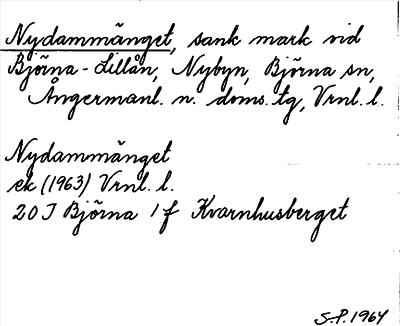 Nydammänget, sank mark vid
Björna-Lillån, Nybyn, Björna sn,
Ångermanl. n. doms. tg, Vrnl. l.
Nydammänget
ek (1963) Vrnl. l.
20 J Björna 1 f Kvarnhusberget
S.P. 1964